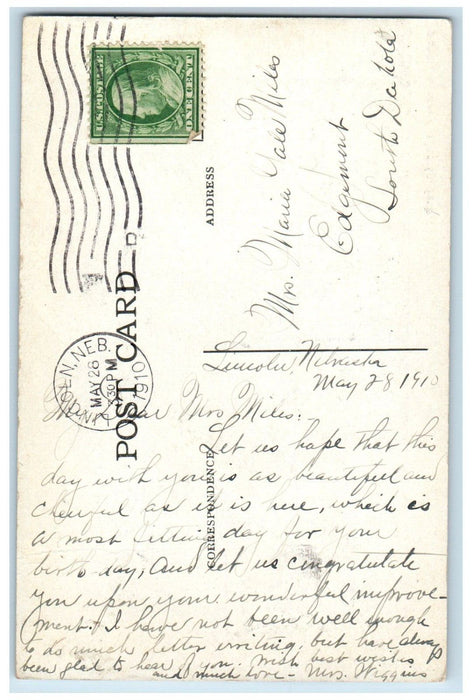 U.S. POSTAGE
ONE CENT
LINCOLN, NEB.
MAY 28
30 PM
1910
D
POST CARD
ADDRESS
CORRESPONDENCE
Mrs. Maria Miles
Edgemont
South Dakota
Lincoln, Nebraska
May 28 1910
My Dear Mrs Miles:
Let us hope that this
day with you is as beautiful and
cheerful as it is here, which is
a most fitting day for your
birth-day, and let us congratulate
you upon your wonderful improve-
ment. I have not been well enough
to do much letter writing, but have always
been glad to hear of you. With best wishes
and much love - Mrs. Higgins